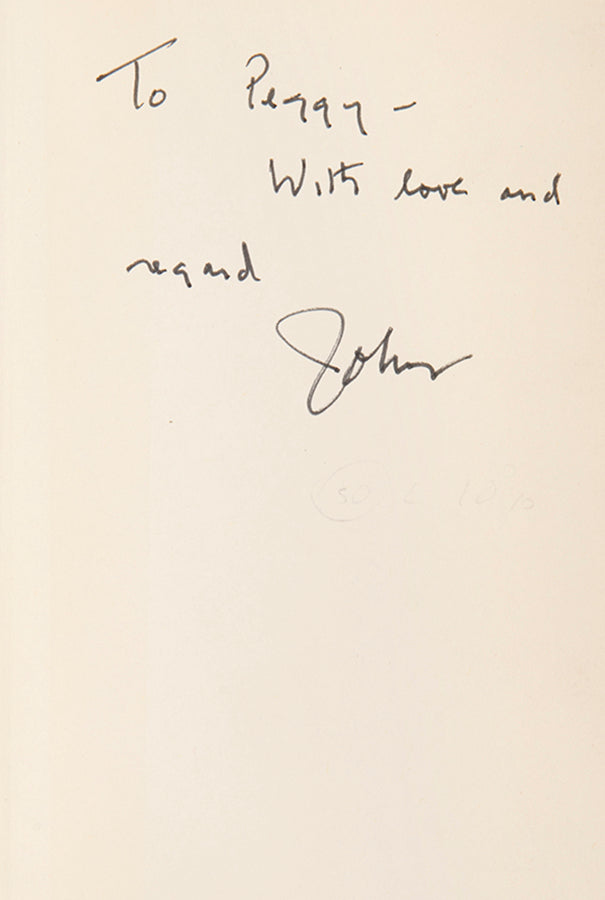 To Peggy –
With love and
regard
John